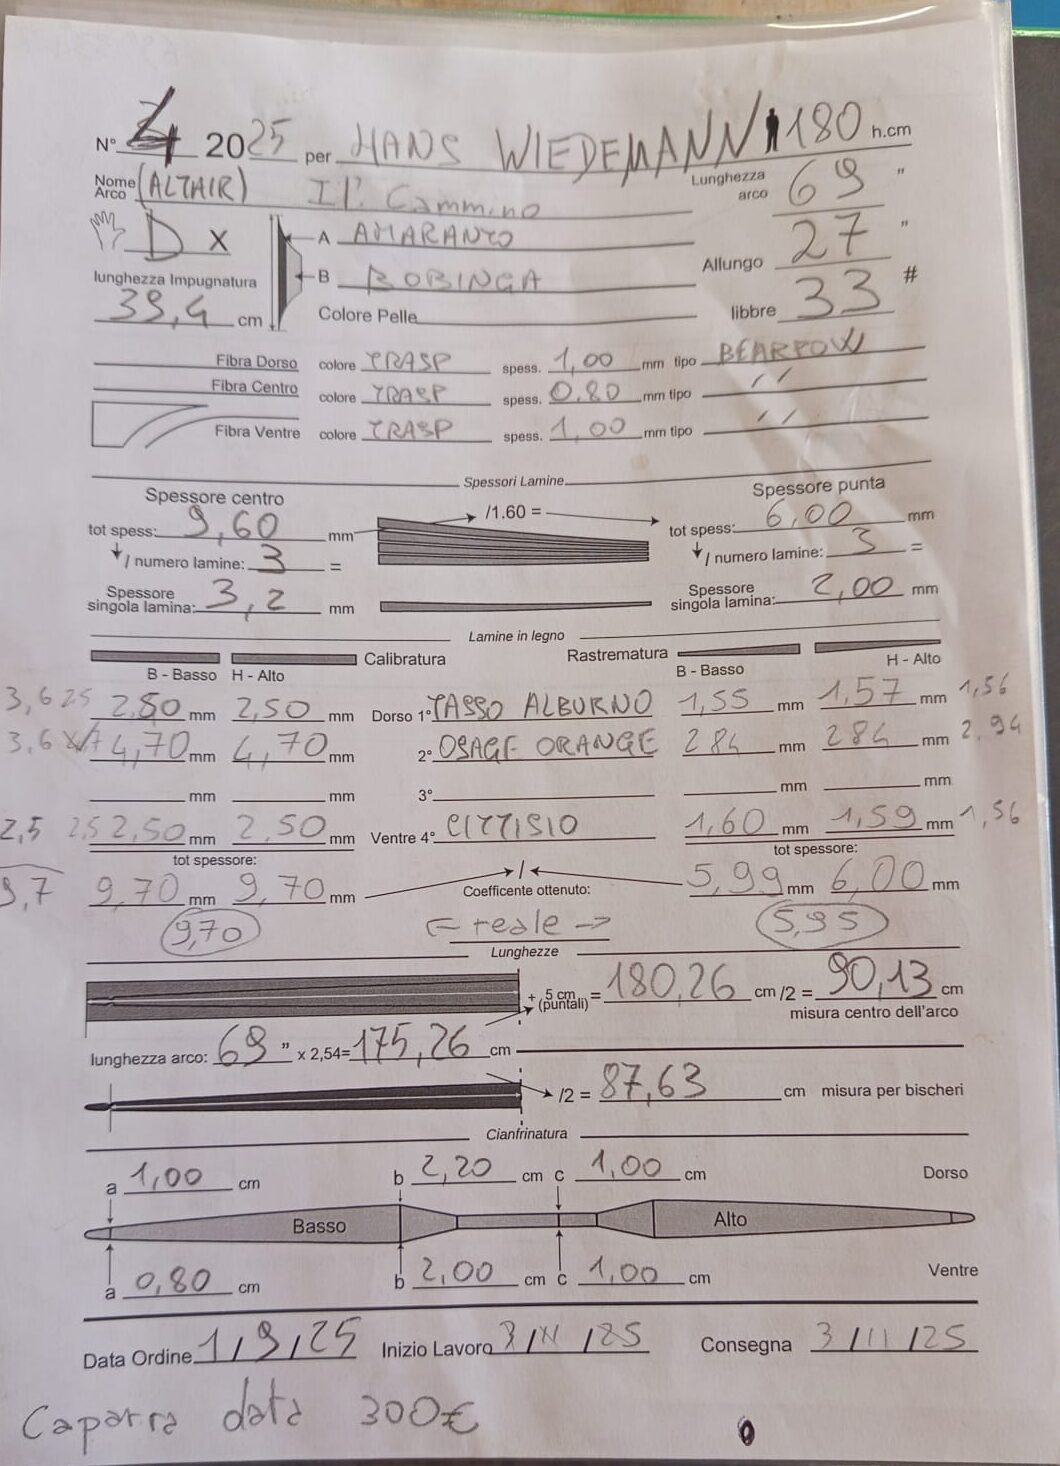 N° 4 2025 per HANS WIEDEMANN 180 h.cm
Nome Arco (ALTAIR) Il Cammino Lunghezza arco 69 "
D X A AMARANTO Allungo 27 "
lunghezza Impugnatura 39,4 cm B BOBINGA libbre 33 #
Colore Pelle
Fibra Dorso colore TRASP spess. 1,00 mm tipo BEARPOW
Fibra Centro colore TRASP spess. 0.80 mm tipo //
Fibra Ventre colore TRASP spess. 1,00 mm tipo //
Spessori Lamine
Spessore centro Spessore punta
tot spess: 9,60 mm /1.60 = tot spess: 6,00 mm
/ numero lamine: 3 = / numero lamine: 3 =
Spessore singola lamina: 3,2 mm Spessore singola lamina: 2,00 mm
Lamine in legno
Calibratura Rastrematura
B - Basso H - Alto B - Basso H - Alto
3,625 2,50 mm 2,50 mm Dorso 1° TASSO ALBURNO 1,55 mm 1,57 mm 1,56
3,6 4,70 mm 4,70 mm 2° OSAGE ORANGE 284 mm 284 mm 2.94
mm mm 3° mm mm
2,5 2,5 2,50 mm 2,50 mm Ventre 4° CITTISIO 1,60 mm 1,59 mm 1,56
tot spessore: tot spessore:
9,7 9,70 mm 9,70 mm / Coefficente ottenuto: 5,99 mm 6,00 mm
9,70 <= reale -> 5,95
Lunghezze
+ 5 cm (puntali) = 180,26 cm /2 = 90,13 cm
misura centro dell'arco
lunghezza arco: 69 " x 2,54= 175,26 cm
/2 = 87,63 cm misura per bischeri
Cianfrinatura
a 1,00 cm b 2,20 cm c 1,00 cm Dorso
Basso Alto
a 0,80 cm b 2,00 cm c 1,00 cm Ventre
Data Ordine 1/9/25 Inizio Lavoro 3/ /25 Consegna 3/11/25
Caparra data 300€